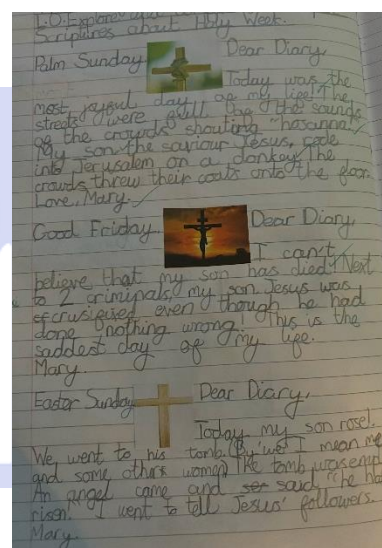 L.O. Explore
Scriptures about Holy Week.
Palm Sunday Dear Diary,
Today was the
most joyful day of my life! The
streets were full of the sounds
of the crowds shouting "hosanna!"
My son the saviour Jesus, rode
into Jerusalem on a donkey. The
crowds threw their coats onto the floor.
Love, Mary.
Good Friday Dear Diary,
I can't
believe that my son has died! Next
to 2 criminals, my son Jesus was
crusified even though he had
done nothing wrong. This is the
saddest day of my life.
Mary.
Easter Sunday Dear Diary,
Today my son rose!
We went to his tomb. (By 'we' I mean me
and some others women) The tomb was emp
An angel came and said, "he ha
risen! I went to tell Jesus' followers.
Mary.